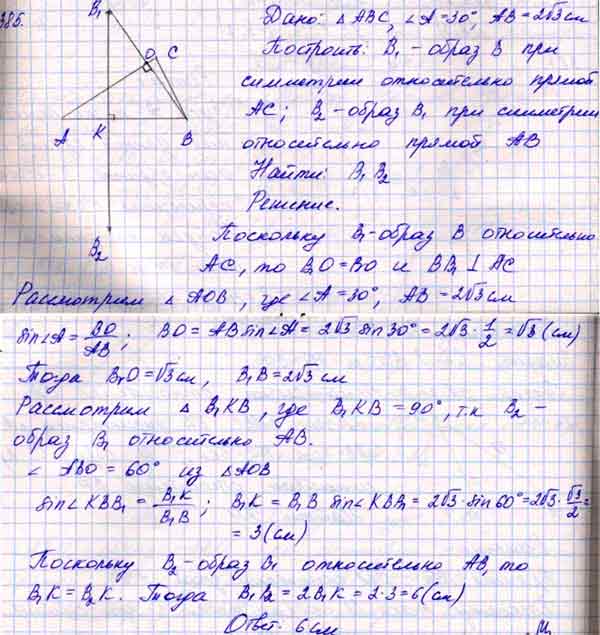 385.
B₁
O
C
A
K
B
B₂
Дано: △ABC, ∠A=30°, AB=2√3 см
Построить: B₁ - образ B при
симметрии относительно прямой
AC; B₂ - образ B₁ при симметрии
относительно прямой AB
Найти: B₁B₂
Решение.
Поскольку B₁-образ B относительно
AC, то B₁O=BO и BB₁⊥AC
Рассмотрим △AOB, где ∠A=30°, AB=2√3 см
sin∠A = BO/AB; BO = AB sin∠A = 2√3 sin30° = 2√3·1/2 = √3 (см)
Тогда B₁O=√3 см, B₁B=2√3 см
Рассмотрим △B₁KB, где B₁KB=90°, т.к B₂ -
образ B₁ относительно AB.
∠ABO = 60° из △AOB
sin∠KBB₁ = B₁K/B₁B; B₁K = B₁B sin∠KBB₁ = 2√3·sin60° = 2√3·√3/2 =
= 3 (см)
Поскольку B₂-образ B₁ относительно AB, то
B₁K = B₂K. Тогда B₁B₂ = 2B₁K = 2·3 = 6 (см)
Ответ: 6 см